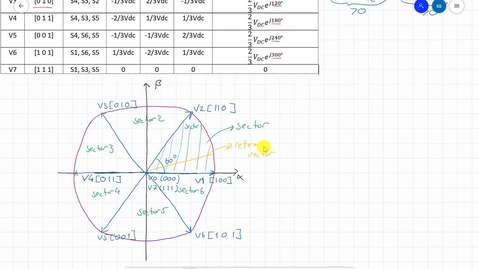 [0 1 0] S4, S3, S2 -1/3Vdc 2/3Vdc -1/3Vdc
V4 [0 1 1] S4, S3, S5 -2/3Vdc 1/3Vdc 1/3Vdc 2/3 V_DC e^j180°
V5 [0 0 1] S4, S6, S5 -1/3Vdc -1/3Vdc 2/3Vdc 2/3 V_DC e^j240°
V6 [1 0 1] S1, S6, S5 1/3Vdc -2/3Vdc 1/3Vdc 2/3 V_DC e^j300°
V7 [1 1 1] S1, S3, S5 0 0 0 0
70
β
V3 [010]
V2 [110]
sector 2
sector
sector
sector 3
60°
V4 [011]
V0 (000)
V1 [100]
α
V7 (111)
sector 6
sector 4
sector 5
V5 [001]
V6 [101]